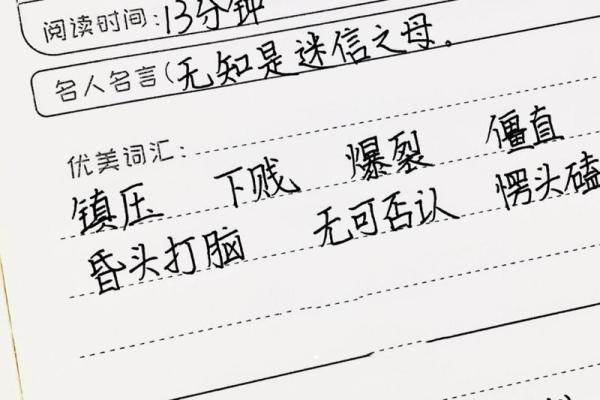 阅读时间：13分钟
名人名言（无知是迷信之母。
优美词汇：
镇压 下贱 爆裂 僵直
昏头打脑 无可否认 愣头磕